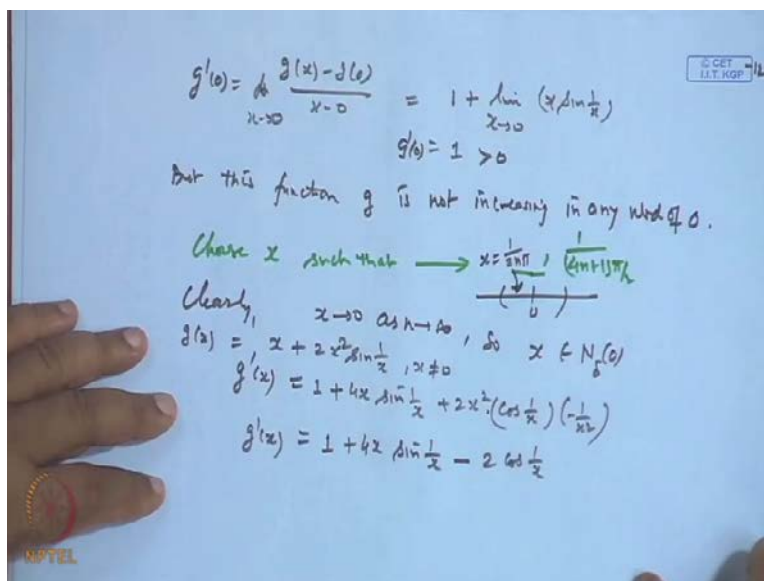 © CET
I.I.T. KGP
g'(0) = lim_{x→0} (g(x) - g(0))/(x - 0) = 1 + lim_{x→0} (x sin 1/x)
g'(0) = 1 > 0
But this function g is not increasing in any nbd of 0.
Choose x such that → x = 1/(2nπ), 1/((4n+1)π/2)
( 0 )
Clearly, x→0 as n→∞, so x ∈ N_δ(0)
g(x) = x + 2x² sin 1/x, x≠0
g'(x) = 1 + 4x sin 1/x + 2x²·(cos 1/x)(-1/x²)
g'(x) = 1 + 4x sin 1/x - 2 cos 1/x
NPTEL